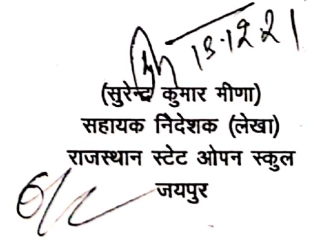 13.12.21
(सुरेन्द्र कुमार मीणा)
सहायक निदेशक (लेखा)
राजस्थान स्टेट ओपन स्कुल
जयपुर